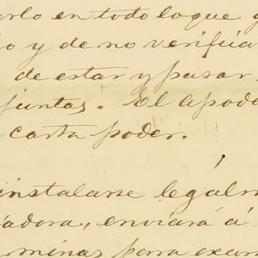 arlo en todo lo que
y de no verificar
de estar y pasar
juntas. El apode
carta poder.
instalarse legalm
adora, enviará á
minas para exam